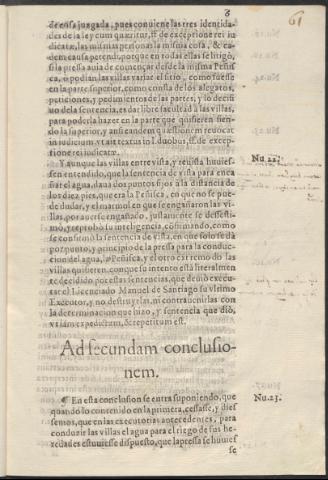 8
61
de cosa juzgada, pues conuiene las tres identida-
des de la ley cum quæritur, ff. de exceptione rei iu-
dicatæ, las mismas personas la misma cosa, & ea-
dem causa petendi, porque en todas ellas se litigò,
si la pressa auia de començar desde la misma Peñis
ca, o podian las villas variar el sitio, como fuesse
en la parte superior, como consta de los alegatos,
peticiones, y pedimientos de las partes, y lo decisi
uo de la sentencia, es dar libre facultad a las villas,
para poderla hazer en la parte que quisieren sien-
do la superior, y ansi eandem quæstionem reuocat
in iudicium vt ait textus in l. duobus, ff. de excep-
tione rei iudicatæ.
Y aunque las villas en vista, y reuista huuies-
sen entendido, que la sentencia de vista para enca
ñar el agua, daua dos puntos fijos a la distancia de
los diez pies, que era la Peñisca, en que no se pue-
de dudar, y el marmol en que se engañaron las vi-
llas, por auerse engañado, justamente se desesti-
mò, y reprobò su inteligencia, cõfirmando, como
se confirmò la sentencia de vista, en que solo se dà
por punto, y principio de la pressa para la conduc-
cion del agua, la Peñisca, y el otro estremo do las
villas quisieren, conque su intento està literalmen
te decidido por estas sentencias, que deuiò execu-
tar el Licenciado Manuel de Santiago su vltimo
Executor, y no destruyrlas, ni contrauenirlas con
la determinacion que hizo, y sentencia que diò,
vt iam expedictum, & repetitum est.
Nu. 22.
Ad secundam conclusio-
nem.
¶ En esta conclusion se entra suponiendo, que
Nu. 23.
quando lo contenido en la primera, cessasse, y dies
semos, que en las executorias antecedentes, para
conduzir las villas el agua para el riego de sus he-
redades estuuiesse dispuesto, que la pressa se huuies
se